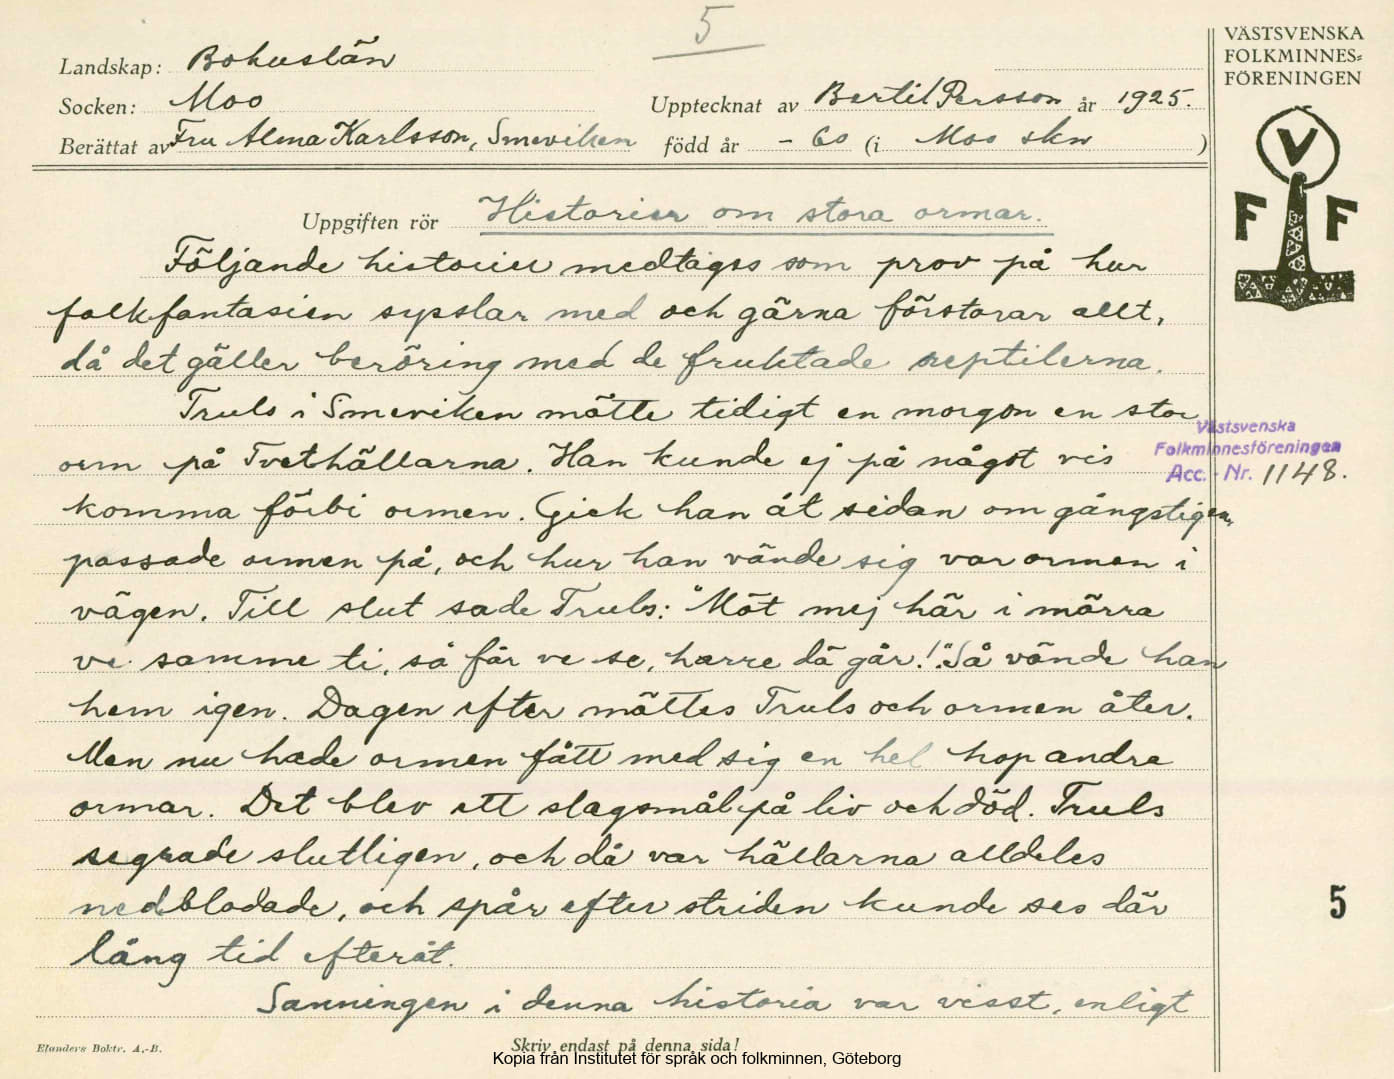 5
VÄSTSVENSKA
FOLKMINNES=
FÖRENINGEN
Landskap: Bohuslän
Socken: Moo
Upptecknat av Bertil Persson år 1925.
Berättat av Fru Alma Karlsson, Smeviken
född år - 60 (i Moo skn )
V
F F
Uppgiften rör Historier om stora ormar.
Följande historier medtages som prov på hur
folkfantasien sysslar med och gärna förstorar allt,
då det gäller beröring med de fruktade reptilerna.
Truls i Smeviken mötte tidigt en morgon en stor
orm på Tvethällarna. Han kunde ej på något vis
Västsvenska
Folkminnesföreningen
Acc. - Nr. 1148.
komma förbi ormen. Gick han åt sidan om gångstigen,
passade ormen på, och hur han vände sig var ormen i
vägen. Till slut sade Truls: "Möt mej här i mårra
ve samme ti, så får ve se, harre då går!" Så vände han
hem igen. Dagen efter möttes Truls och ormen åter.
Men nu hade ormen fått med sig en hel hop andra
ormar. Det blev ett slagsmål på liv och död. Truls
segrade slutligen, och då var hällarna alldeles
nedblodade, och spår efter striden kunde ses där
lång tid efteråt.
Sanningen i denna historia var visst, enligt
5
Elanders Boktr. A.-B.
Skriv endast på denna sida!
Kopia från Institutet för språk och folkminnen, Göteborg